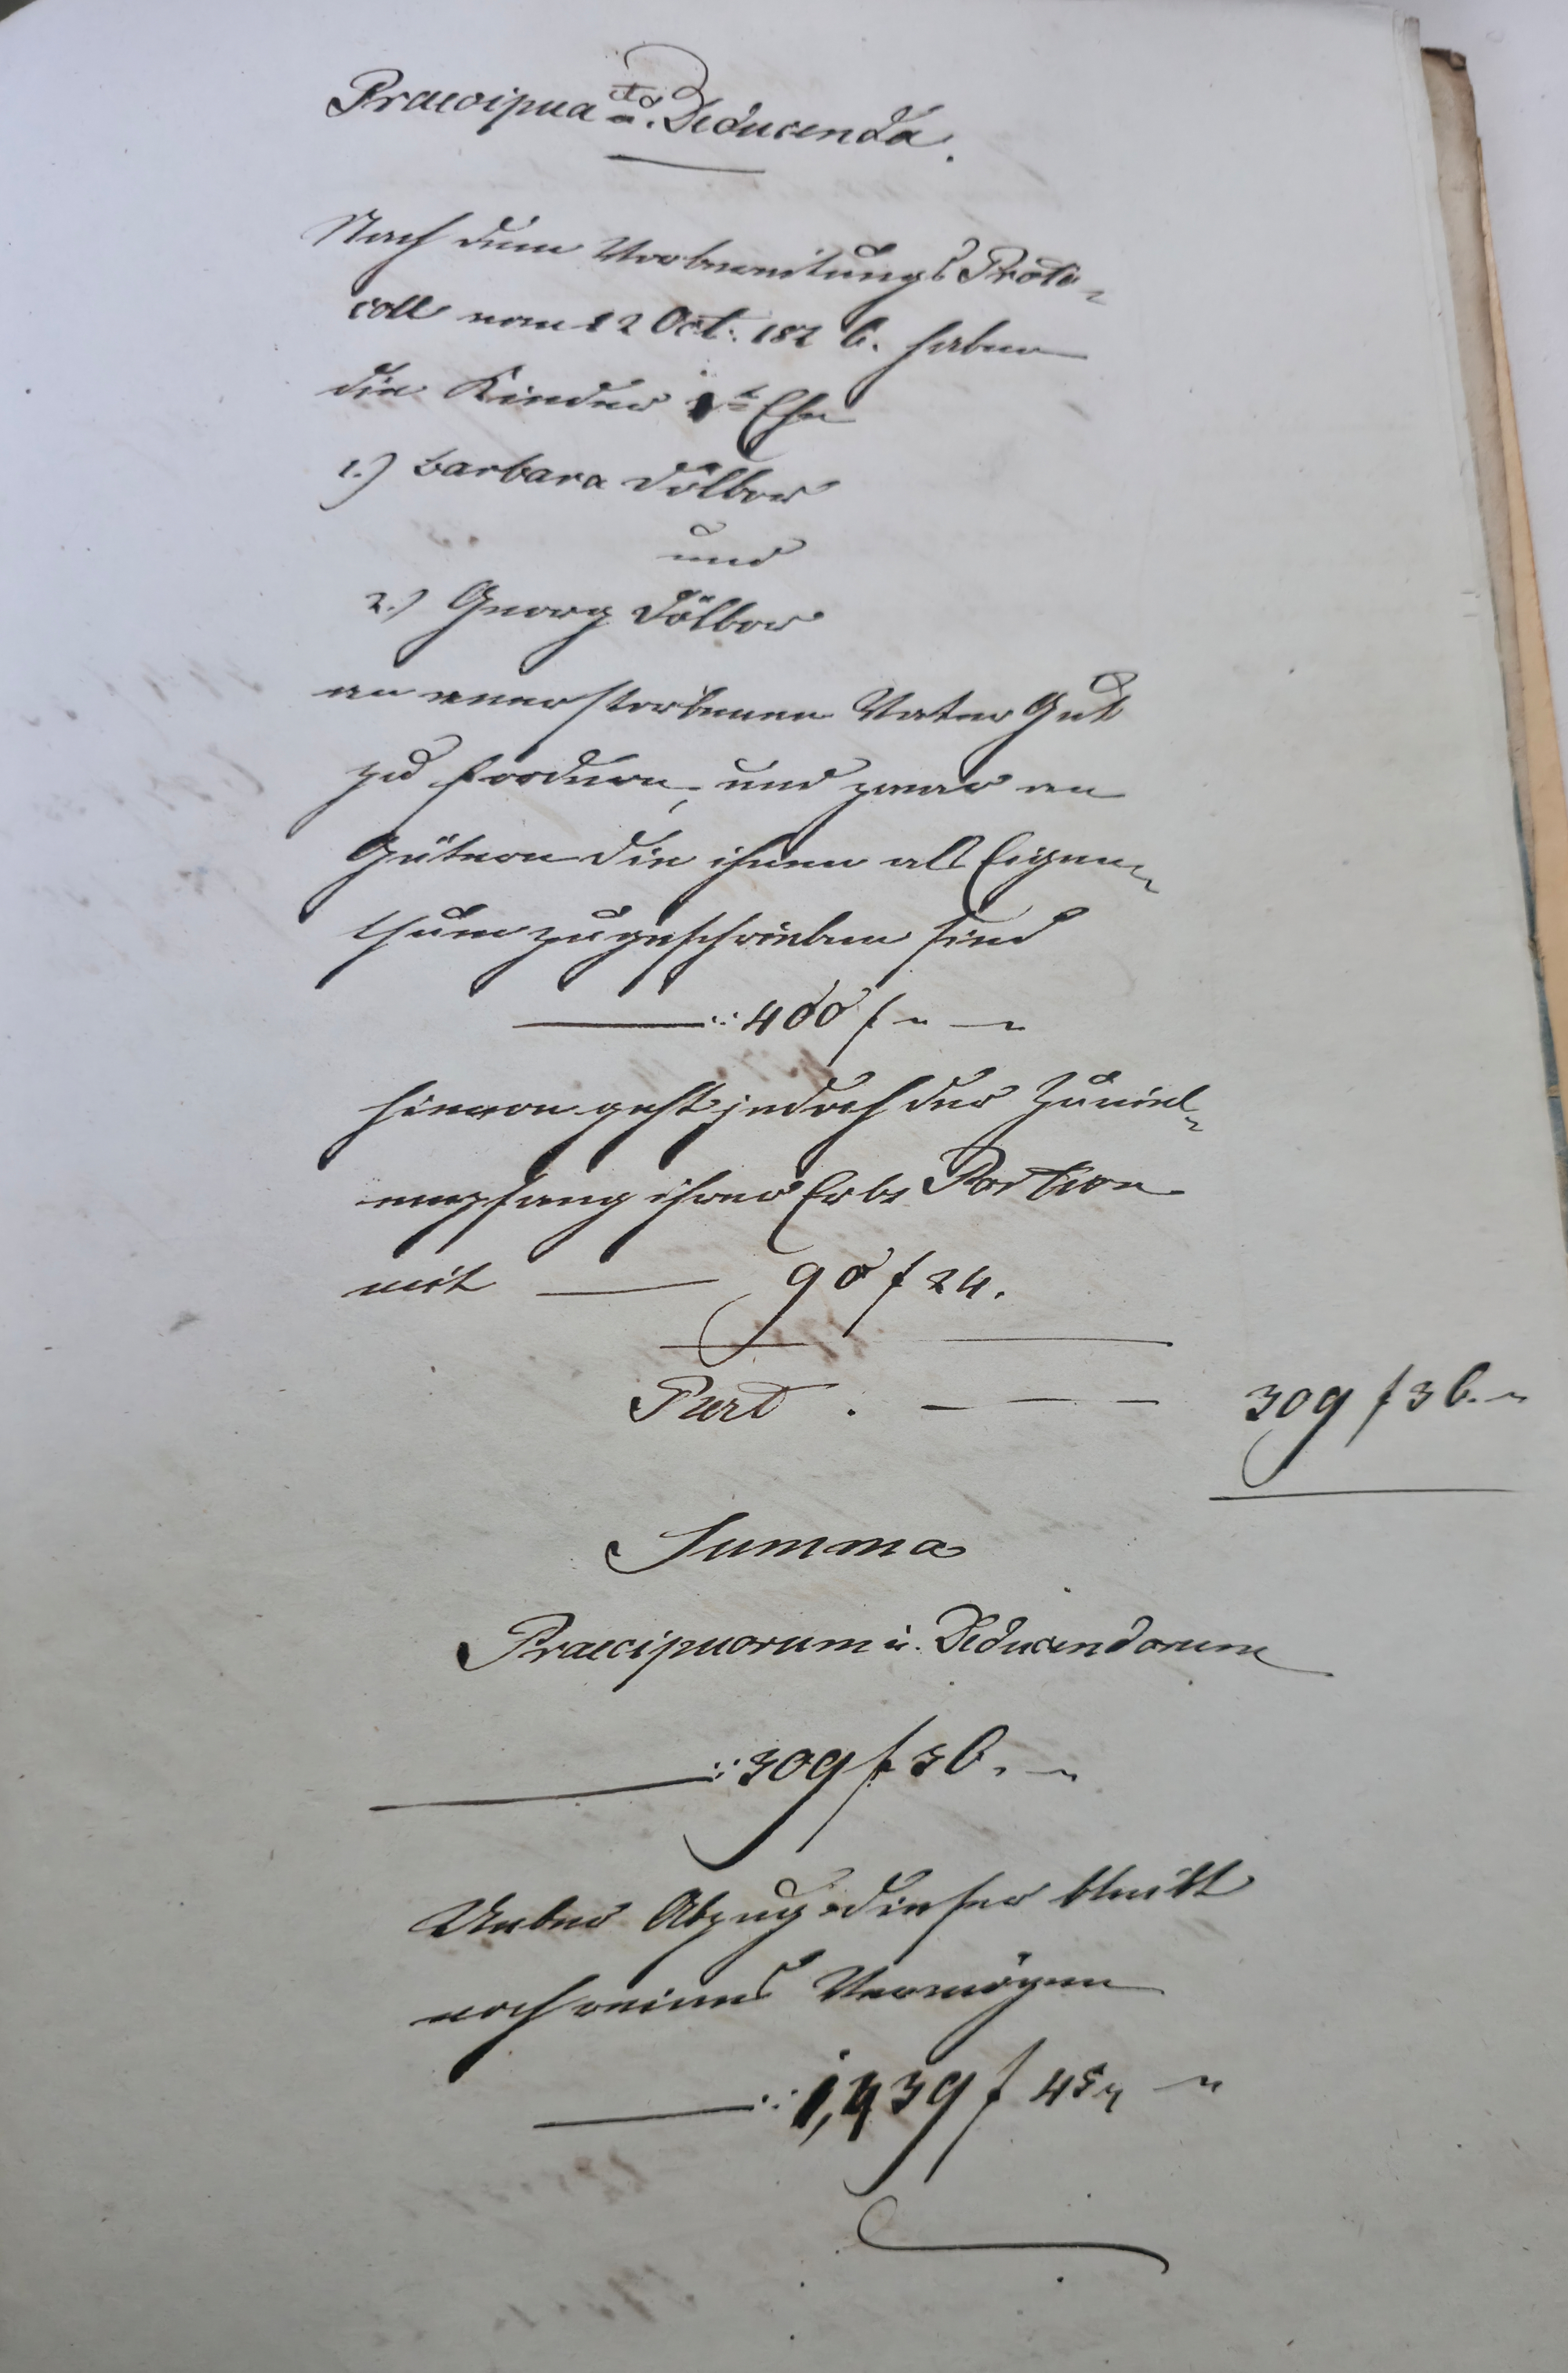 Praecipua et Deducenda.
Nach dem Vorbereitungs Proto-
coll vom 12 Oct. 1826. haben
die Kinder 1r Ehe
1.) Barbara Dölbor
und
2.) Georg Dölbor
an anerstorbenem Vater Gut
zu fordern, und zwar an
Gütern die ihnen als Eigen-
thum zugeschrieben sind
400 f
hievon geht jedoch der Zuviel-
empfang ihrer Erbs Portion
mit 90 f 24.
Rest 309 f 36.
Summa
Praecipuorum u. Deducendorum
309 f 36.
Ueber Abzug dieser bleibt
noch reines Vermögen
1,439 f 45